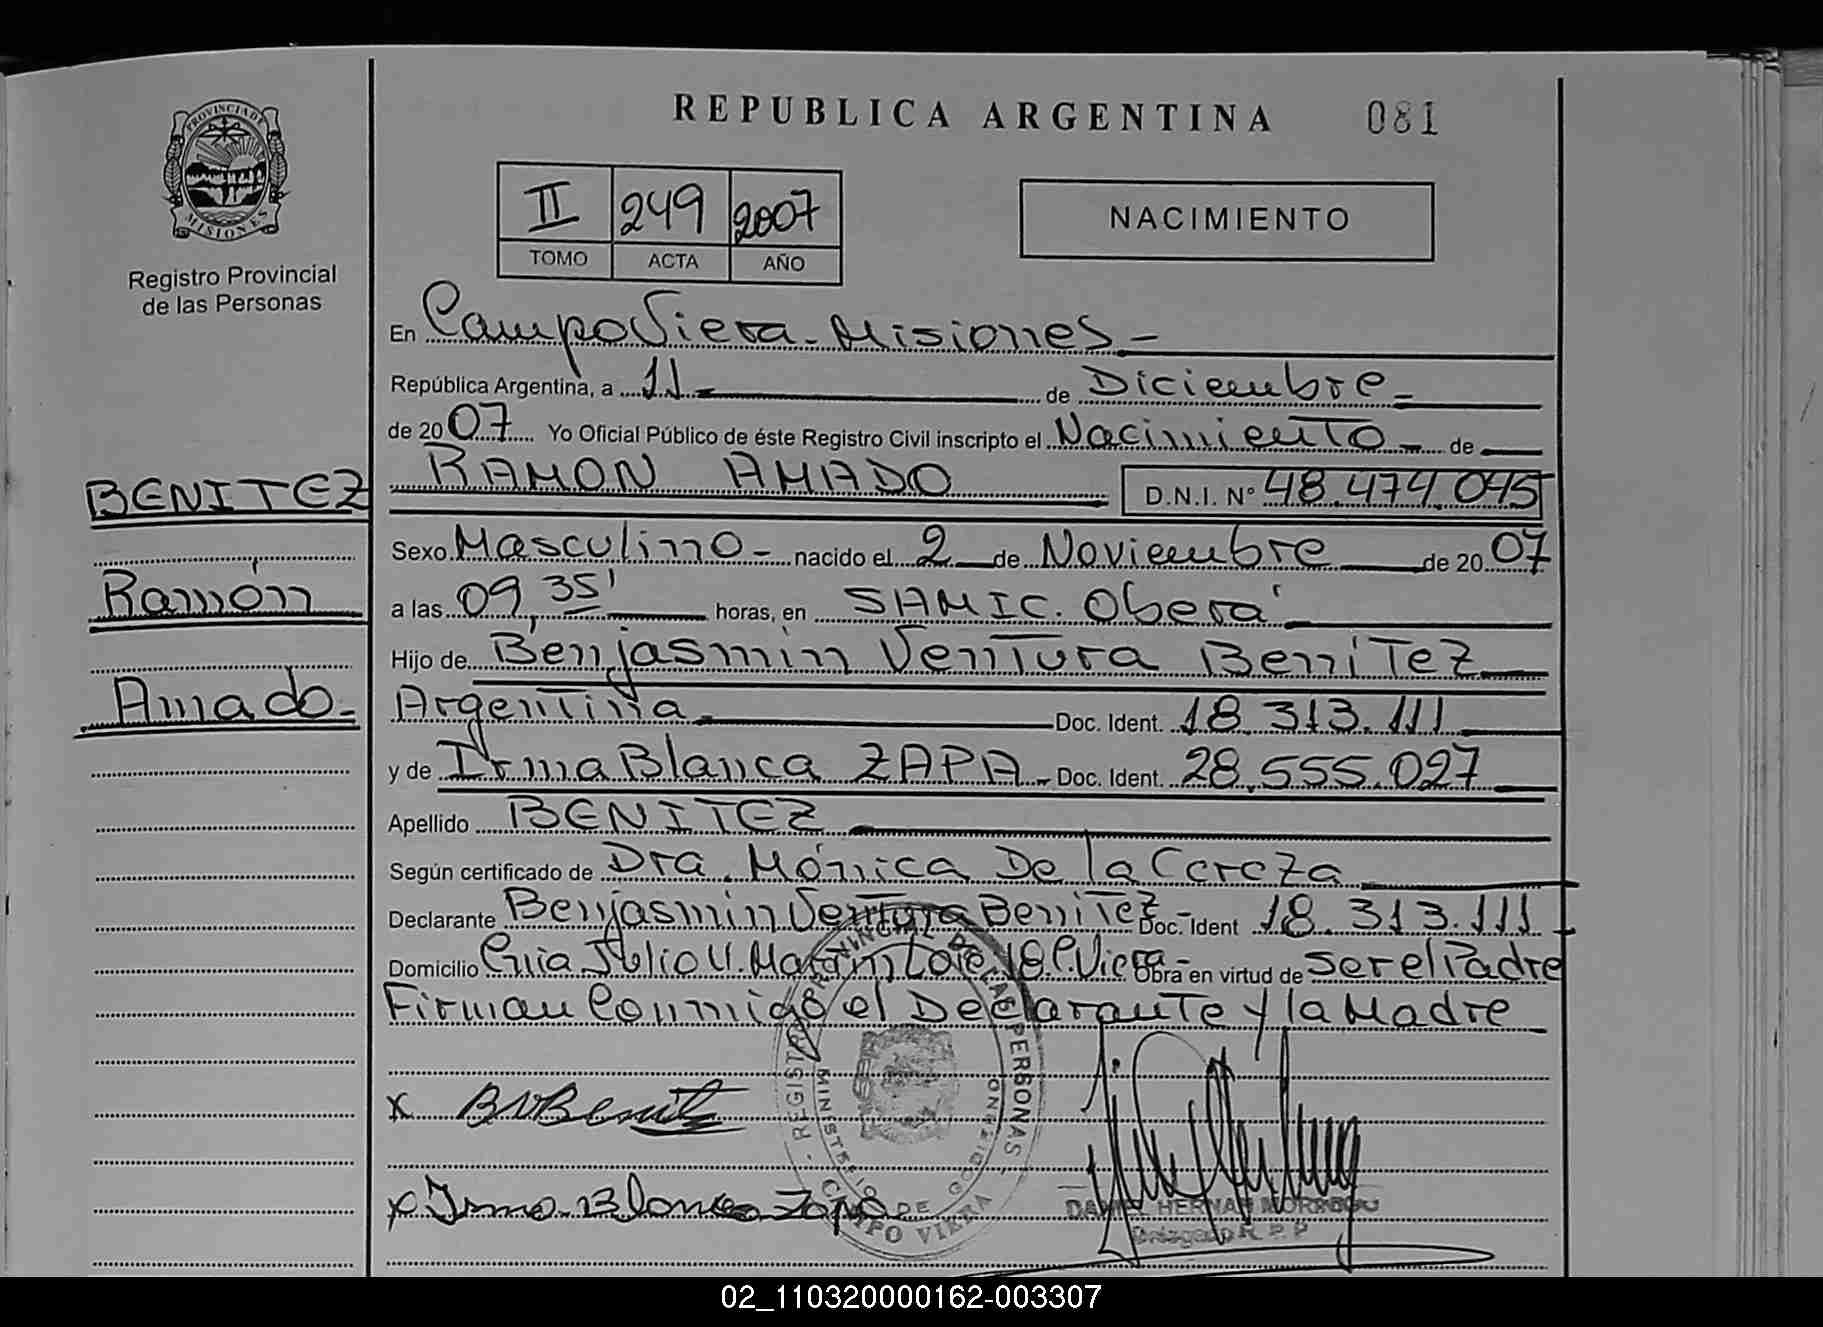 PROVINCIA DE
MISIONES
Registro Provincial
de las Personas
BENITEZ
Ramón
Amado
REPUBLICA ARGENTINA 081
II 249 2007
TOMO ACTA AÑO
NACIMIENTO
En Campo Viera - Misiones
República Argentina, a 11 de Diciembre
de 2007 Yo Oficial Público de éste Registro Civil inscripto el Nacimiento de
RAMON AMADO D.N.I. N° 48.474.045
Sexo Masculino nacido el 2 de Noviembre de 2007
a las 09,35' horas, en SAMIC. Oberá
Hijo de Benjasmin Ventura Benitez
Argentina Doc. Ident. 18.313.111
y de Irma Blanca ZAPA Doc. Ident. 28.555.027
Apellido BENITEZ
Según certificado de Dra. Mónica De la Cereza
Declarante Benjasmin Ventura Benitez Doc. Ident 18.313.111
Domicilio Julio U. Lote 18 C. Viera Obra en virtud de ser el Padre
Firman Conmigo el Declarante y la Madre
x B V Benitez
x Irma Blanca Zapa
REGISTRO PROVINCIAL DE LAS PERSONAS
MINISTERIO DE GOBIERNO
CAMPO VIERA
HERNAN
Delegado R. P. P
02_110320000162-003307